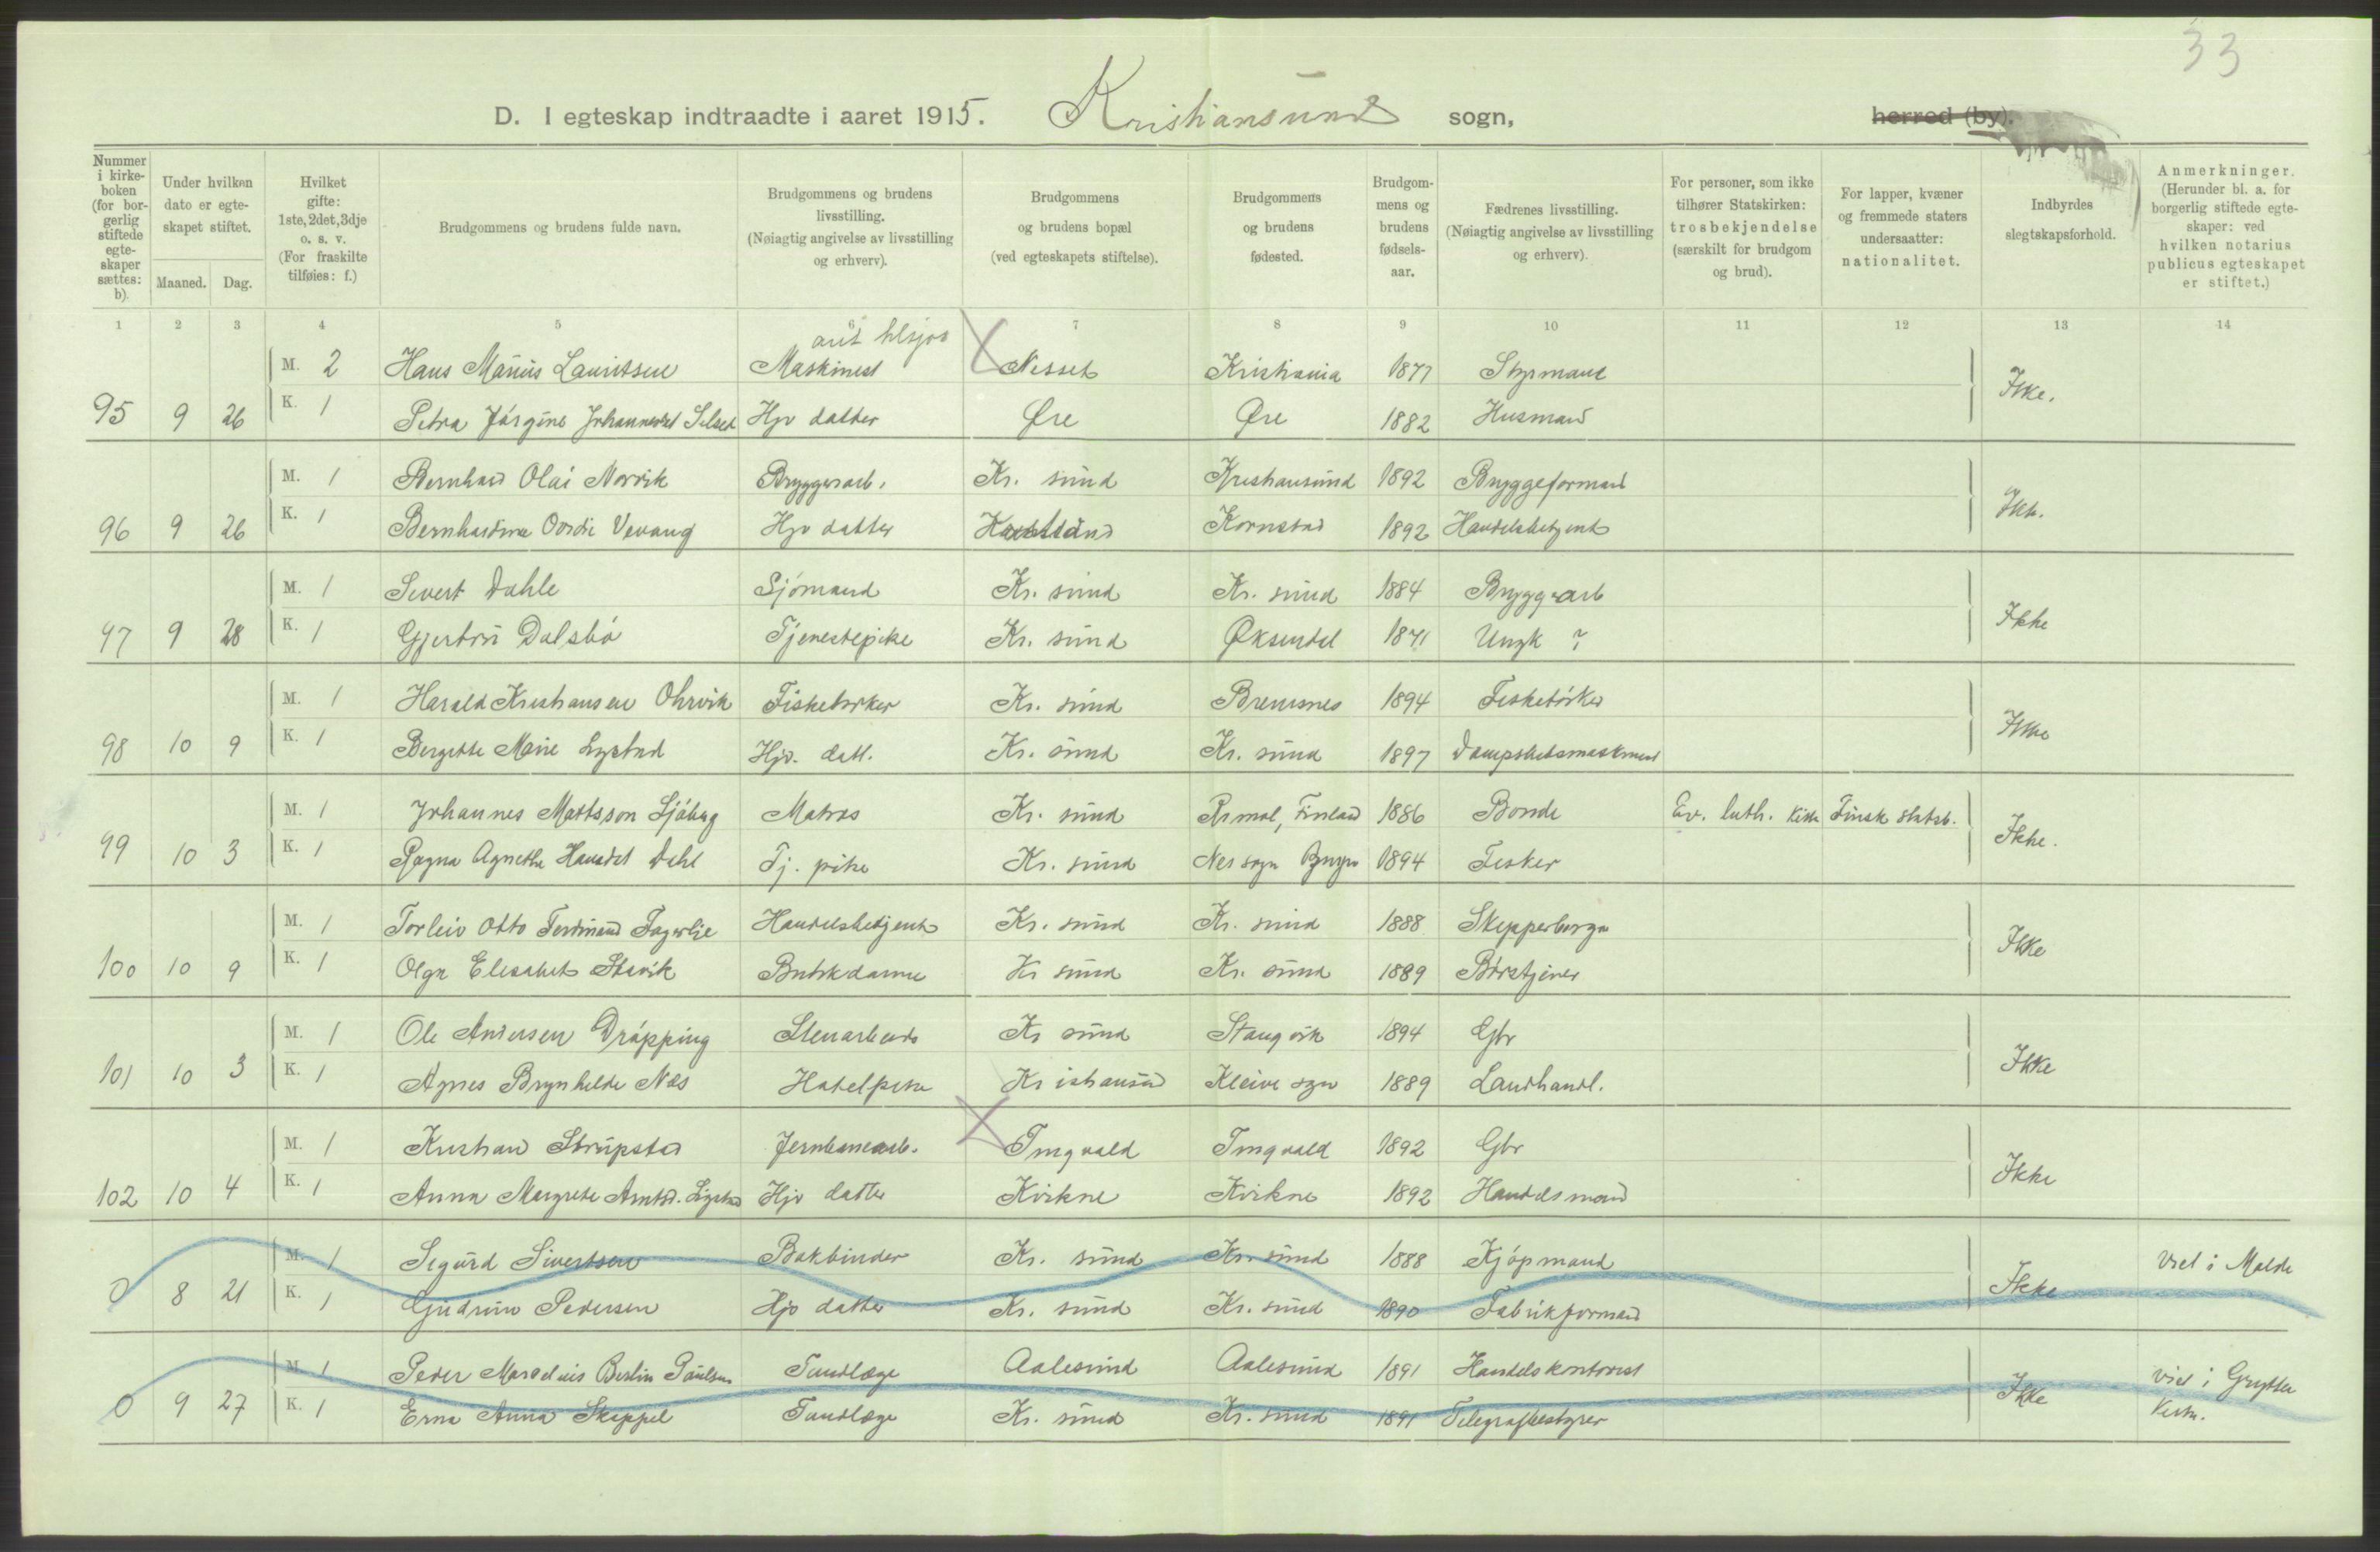 33
D. I egteskap indtraadte i aaret 1915. Kristiansund sogn, herred (by).
Nummer i kirke-boken (for bor-gerlig stiftede egte-skaper sættes: b).
Under hvilken dato er egte-skapet stiftet.
Maaned. Dag.
Hvilket gifte: 1ste, 2det, 3dje o. s. v. (For fraskilte tilføies: f.)
Brudgommens og brudens fulde navn.
Brudgommens og brudens livsstilling. (Nøiagtig angivelse av livsstilling og erhverv).
Brudgommens og brudens bopæl (ved egteskapets stiftelse).
Brudgommens og brudens fødested.
Brudgom-mens og brudens fødsels-aar.
Fædrenes livsstilling. (Nøiagtig angivelse av livsstilling og erhverv).
For personer, som ikke tilhører Statskirken: trosbekjendelse (særskilt for brudgom og brud).
For lapper, kvæner og fremmede staters undersaatter: nationalitet.
Indbyrdes slegtskapsforhold.
Anmerkninger. (Herunder bl. a. for borgerlig stiftede egte-skaper: ved hvilken notarius publicus egteskapet er stiftet.)
1 2 3 4 5 6 7 8 9 10 11 12 13 14
M. 2 Hans Marius Lauritsen Maskinist Nesset Kristiania 1877 Styrmand
95 9 26 K. 1 Petra Jørgine Johannesdt Silset Hjv datter Øre Øre 1882 Husmand Ikke.
M. 1 Bernhard Olai Norvik Bryggerarb. Kr. sund Kristiansund 1892 Bryggeformand
96 9 26 K. 1 Bernhardine Vevang Hjv datter Kornstad 1892 Handelsbetjent Ikk.
M. 1 Sivert Dahle Sjømand Kr. sund Kr. sund 1884 Bryggearb
97 9 28 K. 1 Gjertru Dalsbø Tjenestepike Kr. sund Øksendal 1871 Ungk ? Ikke
M. 1 Harald Kristiansen Ohrvik Fisketørker Kr. sund Bremsnes 1894 Fisketørker
98 10 9 K. 1 Bergitte Marie Lystad Hjv. datt. Kr. sund Kr. sund 1897 Dampskibsmaskinist Ikke
M. 1 Johannes Mattsson Sjöberg Matros Kr. sund Finland 1886 Bonde Ev. luth. kirke Finsk statsb.
99 10 3 K. 1 Ragna Agnethe Hansdt Dahl Tj. pike Kr. sund Nes sogn 1894 Fisker Ikke.
M. 1 Torleiv Otto Ferdinand Fagerlie Handelsbetjent Kr. sund Kr. sund 1888 Skipperborger
100 10 9 K. 1 Olga Elisabet Stavik Butikdame Kr sund Kr. sund 1889 Børstjener Ikke
M. 1 Ole Andersen Drøpping Stenarbeider Kr sund Stangvik 1894 Gbr
101 10 3 K. 1 Agnes Brynhilde Næs Hotelpike Kristiansund Kleive sogn 1889 Landhandl. Ikke
M. 1 Kristian Strupstad Jernbanearb. Tingvold Tingvold 1892 Gbr
102 10 4 K. 1 Anna Margrete Arntsd. Hjv datter Kvikne Kvikne 1892 Handelsmand Ikke
M. 1 Sigurd Sivertsen Bokbinder Kr. sund Kr. sund 1888 Kjøpmand Viet i Molde
0 8 21 K. 1 Gudrun Pedersen Hjv datter Kr. sund Kr. sund 1890 Fabrikformand Ikke
M. 1 Peder Marselius Berlin Paulsen Tandlæge Aalesund Aalesund 1891 Handelskontorist viet i Grytten
0 9 27 K. 1 Erna Anna Skeppel Tandlæge Kr. sund Kr. sund 1891 Telegrafbestyrer Ikke kirke.